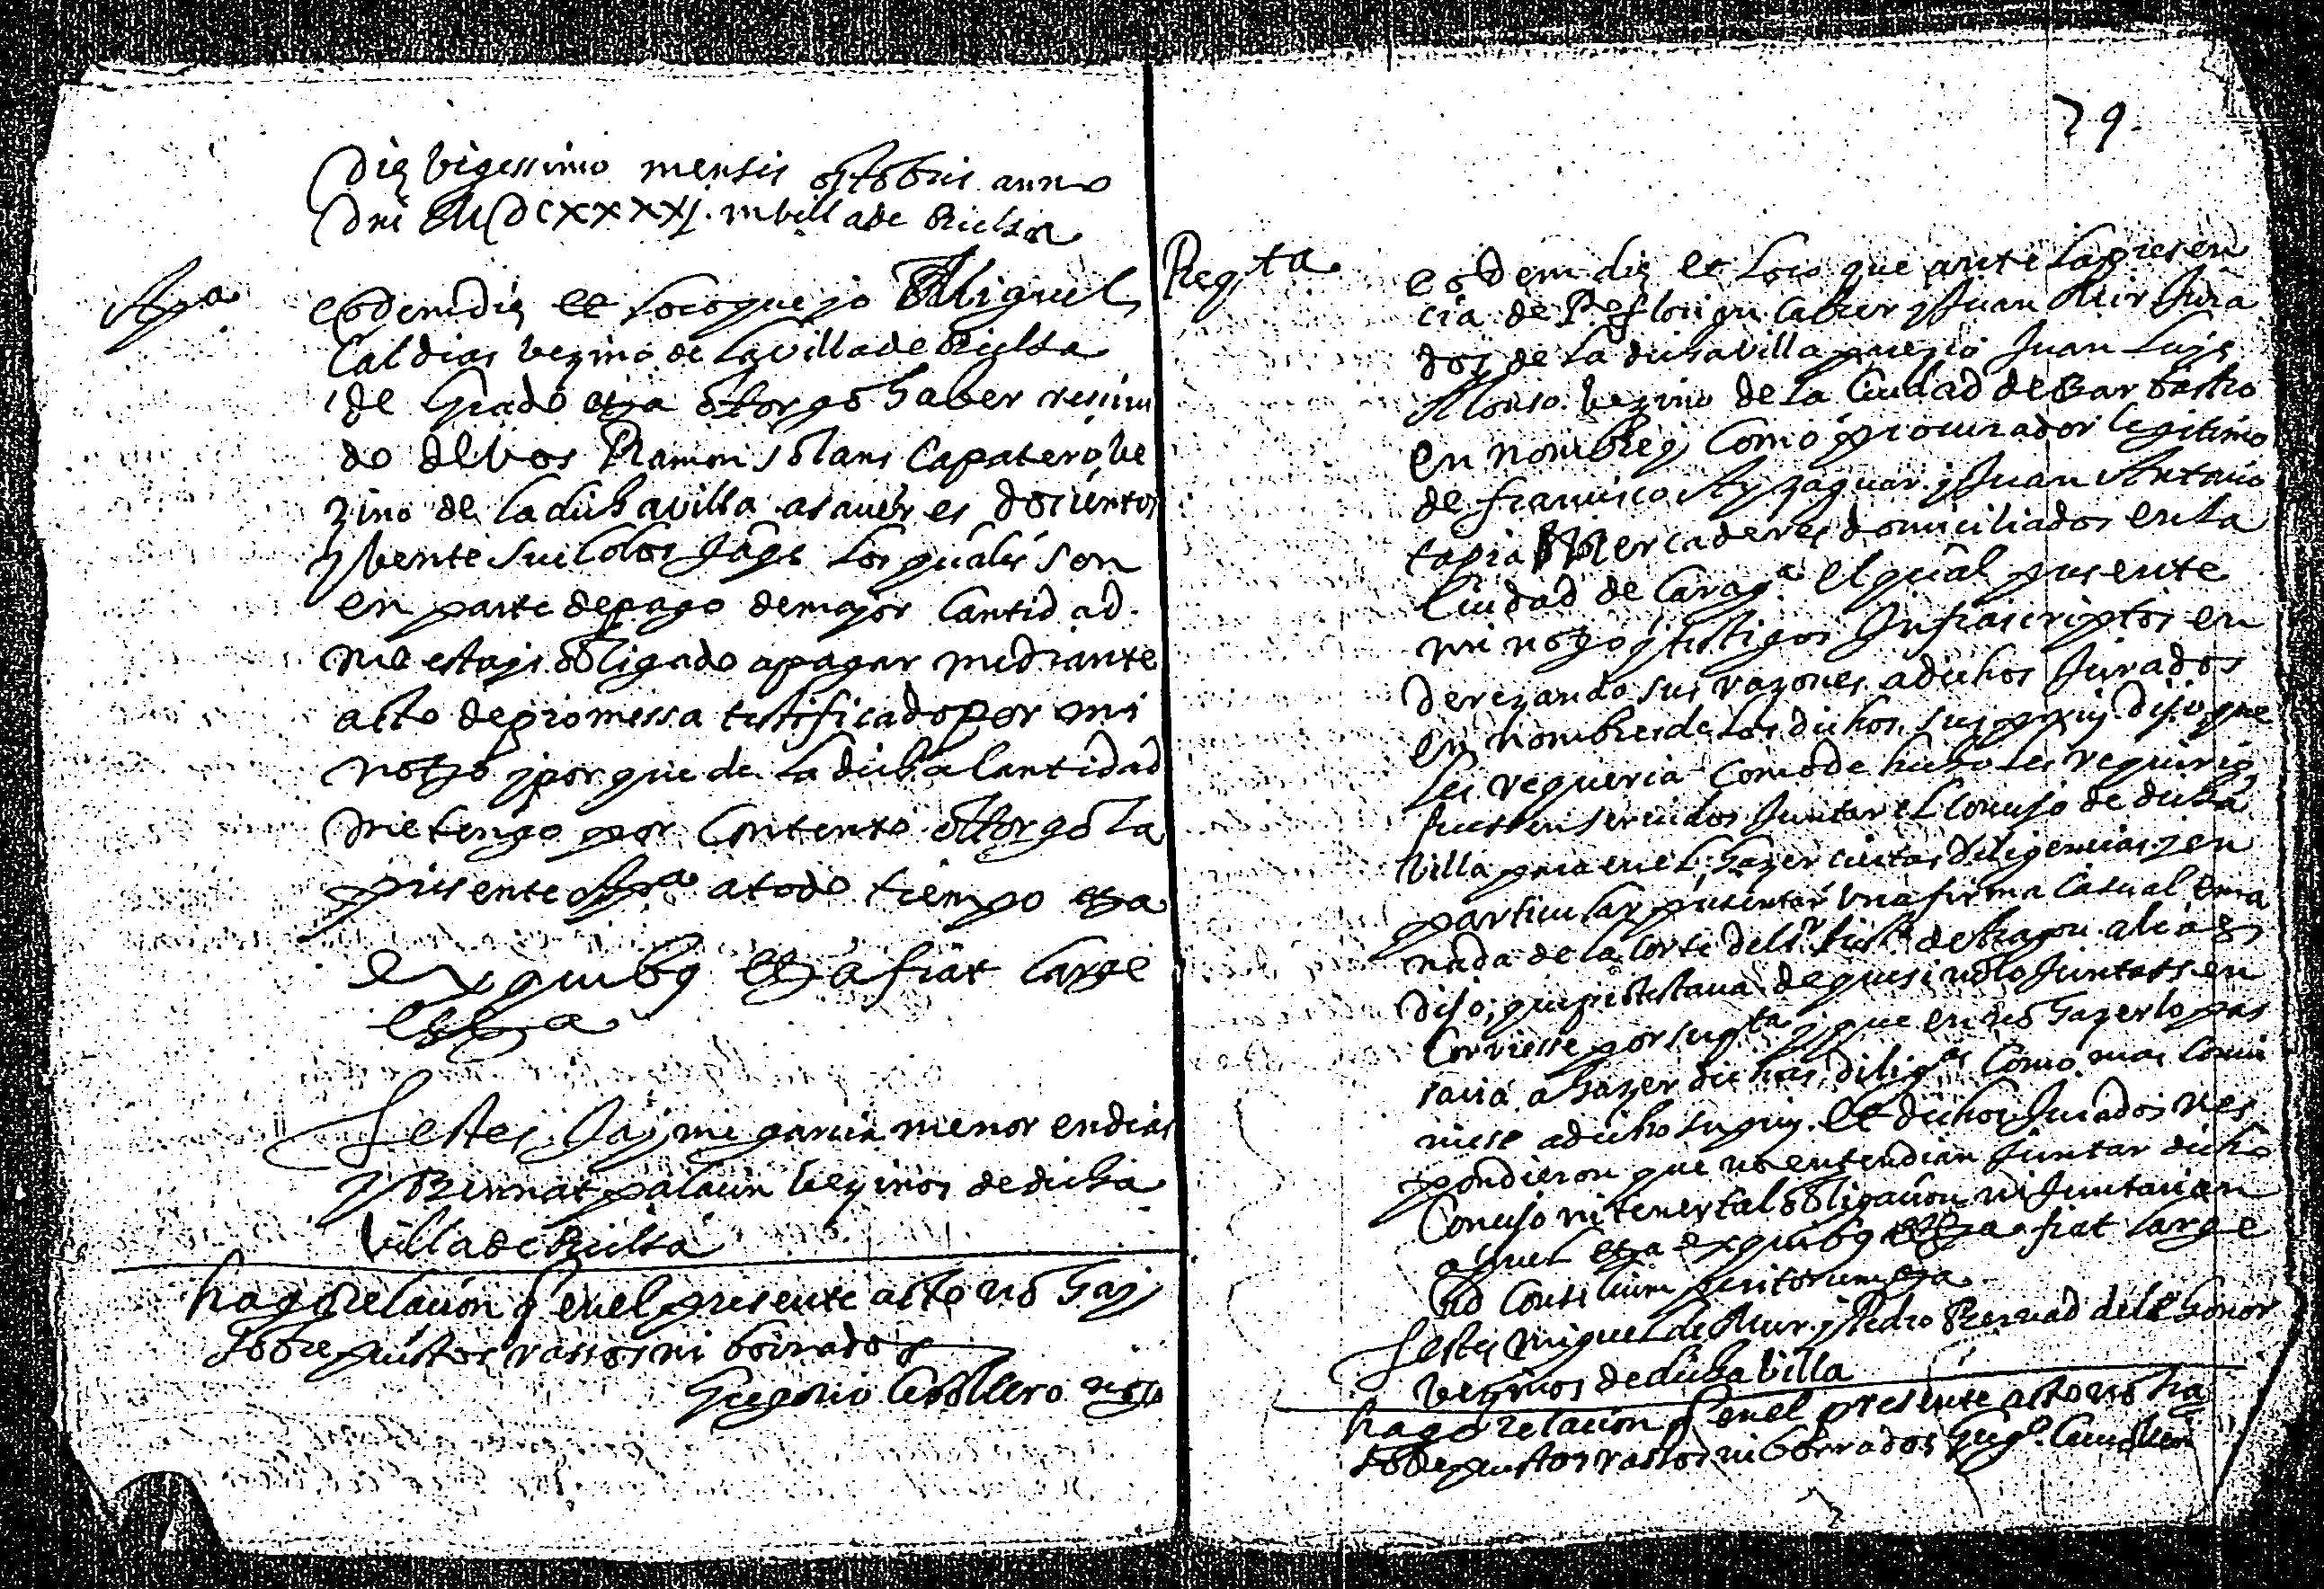 Die vigessimo mensis octobris anno
Dni MDCXXXXI. in villa de Bielsa
Apa
eodem die et loco que yo Miguel
Caldias vezino de la villa de Bielsa
de Grado etza otorgo haber recivi
do de vos Ramon solans Capatero ve
zino de la dicha villa asaver es docientos
y vente sueldos Jaqs los quales son
en parte de pago de mayor Cantidad
me estays obligado a pagar mediante
acto de promessa testificado por mi
notro y porque de la dicha Cantidad
me tengo por Contento otorgo la
presente Apa a todo tiempo etza
ex quibg etza fiat large
etza
Testes Jayme garcia menor en dias
y Bernat palacin vezinos de dicha
villa de Bielsa
hago relacion q en el presente acto no hay
sobrepuestos rassos ni borrados
Gregorio notro
79
Reqta
eodem die et loco que ante la presen
cia de y Juan Mur Jura
dos de la dicha villa parezio Juan Luys
Alonso vezino de la Ciudad de Barbastro
en nombre y Como procurador legitimo
de francisco Ayzaguar y Juan Antonio
tapia Mercaderes domiciliados en la
Ciudad de Carag.a El qual presente
mi notro y testigos Infrascriptos en
derezando sus razones a dichos Jurados
en nombre de los dichos sus ppales dijo que
les requeria Como de hecho les requirio
fuessen servidos Juntar el Consejo de dicha
villa para en el hazer ciertas diligencias y en
particular presentar una firma Casual ema
nada de la Corte del Sr Justa de Aragon alias
dijo, que protestava de que si no lo Juntassen
Corriesse por su qta y que en no hazerlo pas
saria a hazer dichas diligas Como mas Convi
niese a dicho su ppal. Et dichos Jurados res
pondieron que no entendian Juntar dicho
Consejo ni tener tal obligacion ni Juntarian
aquel etza ex quibg etza fiat large
ad Consilium peritorum etza
Testes Miguel de Mur y Pedro Bernad del honor
vezinos de dicha villa
hago relacion q en el presente acto no hay
sobrepuestos rassos ni borrados Grego